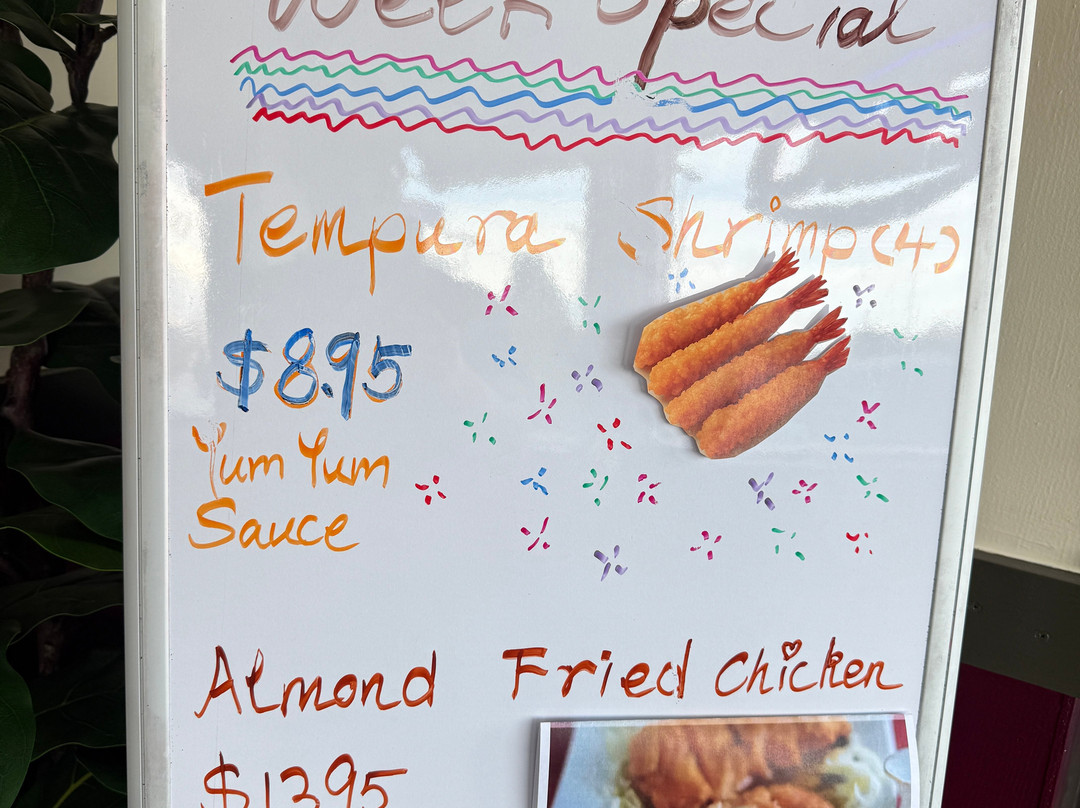 Week Special
Tempura Shrimp (4)
$8.95
Yum Yum
Sauce
Almond Fried Chicken
$13.95